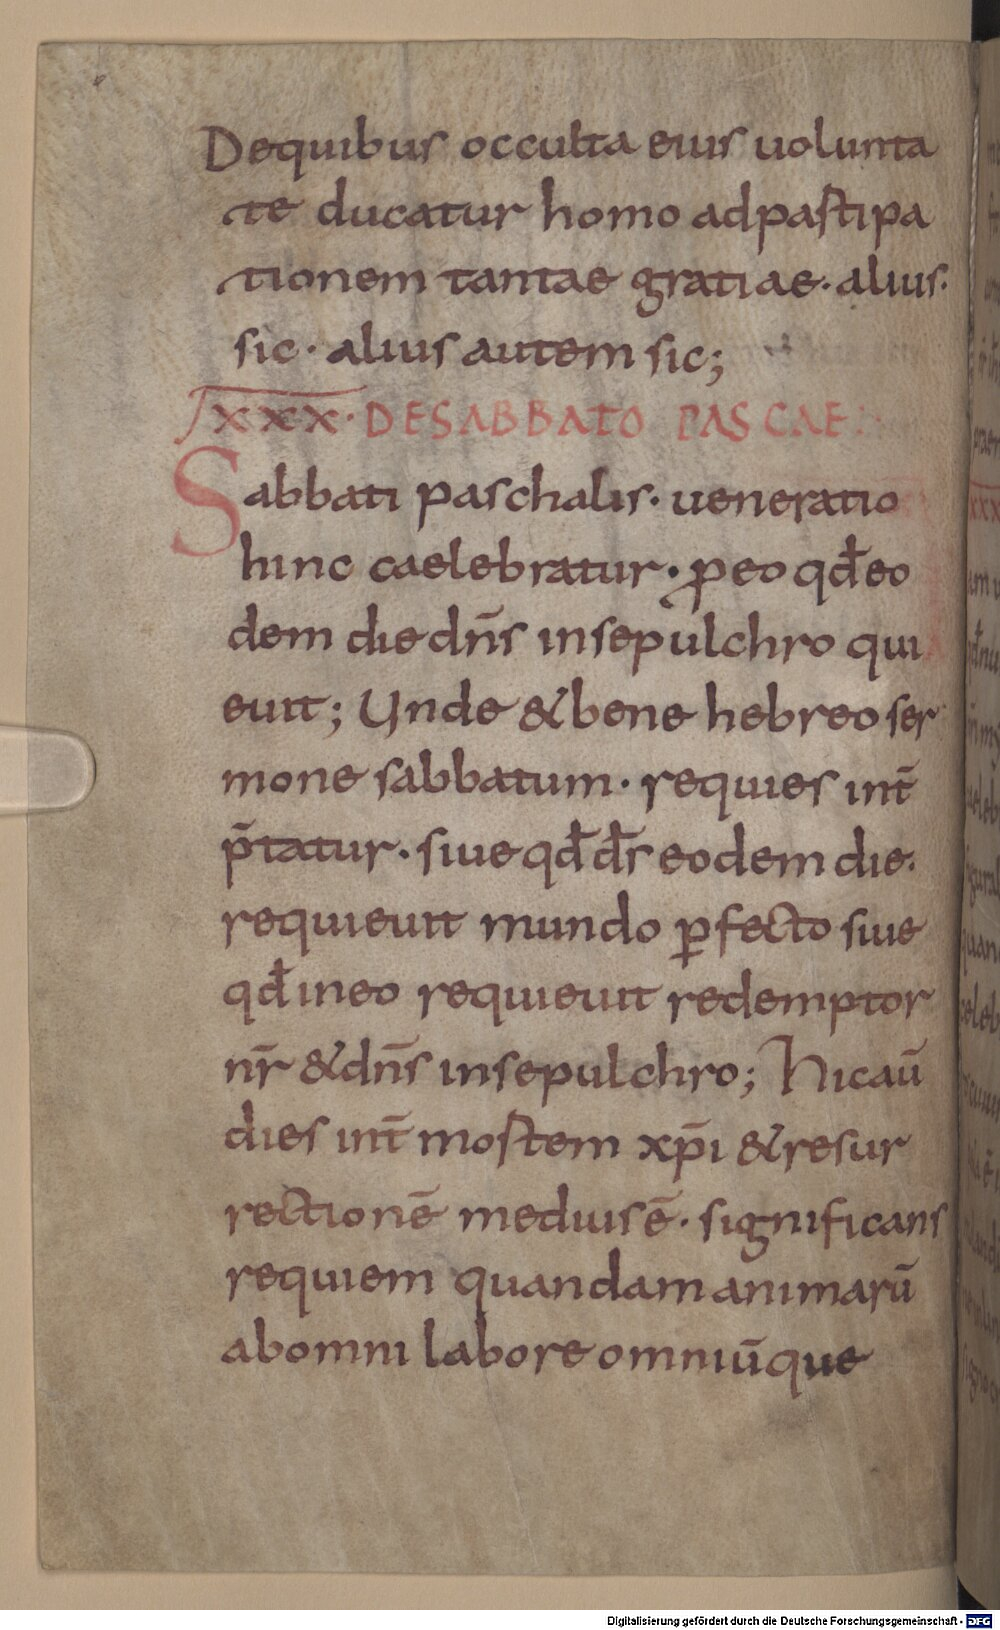 Dequibus occulta eius uolunta
te ducatur homo adpastipa
tionem tantae gratiae· alius·
sic· alius autem sic;
XXX· DE SABBATO PASCAE:
Sabbati paschalis· ueneratio
hinc caelebratur· ꝓeo qđeo
dem die dn̄s insepulchro qui
euit; Unde &bene hebreo ser
mone sabbatum· requies int̄
p̄tatur· siue qđ dr̄ eodem die·
requieuit mundo ꝑfecto siue
qđ ineo requieuit redemptor
nr̄ &dn̄s insepulchro; Hicaū
dies int̄ mostem xp̄i &resur
rectionē mediusē· significans
requiem quandam animarū
abomni labore omniūque
Digitalisierung gefördert durch die Deutsche Forschungsgemeinschaft - DFG